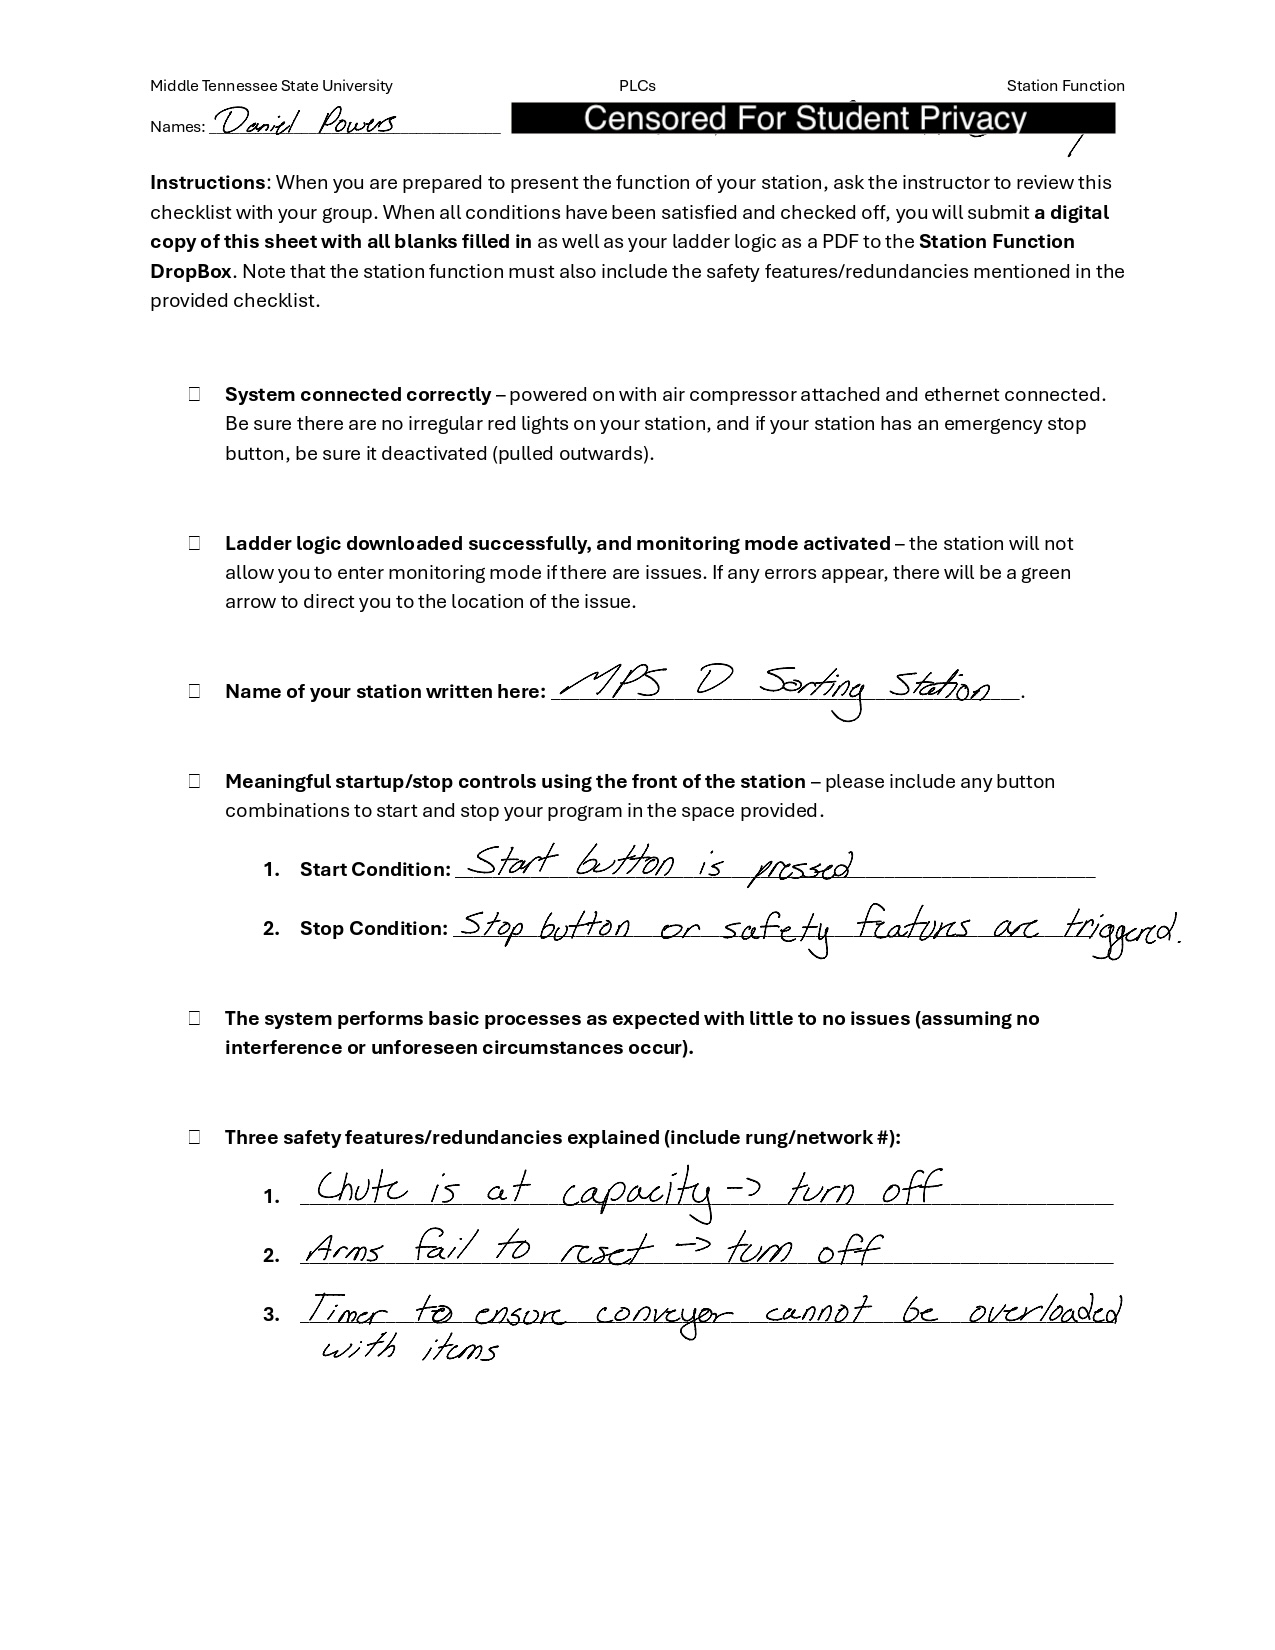 Middle Tennessee State University PLCs Station Function
Names: Daniel Powers Censored For Student Privacy
Instructions: When you are prepared to present the function of your station, ask the instructor to review this
checklist with your group. When all conditions have been satisfied and checked off, you will submit a digital
copy of this sheet with all blanks filled in as well as your ladder logic as a PDF to the Station Function
DropBox. Note that the station function must also include the safety features/redundancies mentioned in the
provided checklist.
☐ System connected correctly – powered on with air compressor attached and ethernet connected.
Be sure there are no irregular red lights on your station, and if your station has an emergency stop
button, be sure it deactivated (pulled outwards).
☐ Ladder logic downloaded successfully, and monitoring mode activated – the station will not
allow you to enter monitoring mode if there are issues. If any errors appear, there will be a green
arrow to direct you to the location of the issue.
☐ Name of your station written here: MPS D Sorting Station.
☐ Meaningful startup/stop controls using the front of the station – please include any button
combinations to start and stop your program in the space provided.
1. Start Condition: Start button is pressed
2. Stop Condition: Stop button or safety features are triggered.
☐ The system performs basic processes as expected with little to no issues (assuming no
interference or unforeseen circumstances occur).
☐ Three safety features/redundancies explained (include rung/network #):
1. Chute is at capacity -> turn off
2. Arms fail to reset -> turn off
3. Timer to ensure conveyor cannot be overloaded
with items